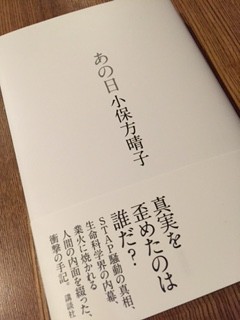 あの日 小保方晴子
真実を
歪めたのは
誰だ？
STAP騒動の真相、
生命科学界の内幕、
業火に焼かれる
人間の内面を綴った、
衝撃の手記。 講談社